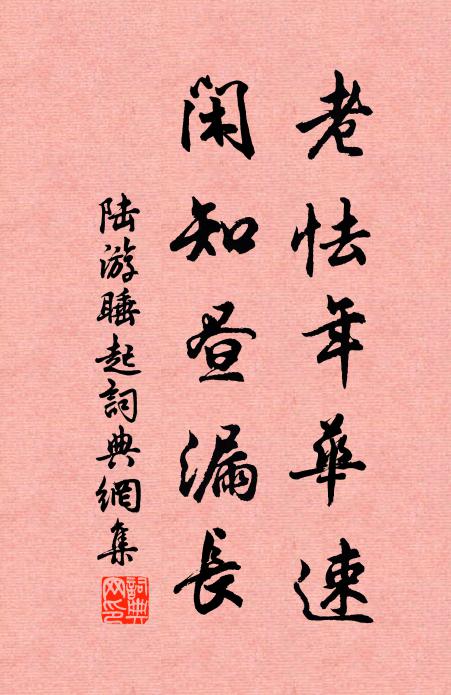 老怯年華速
閑知昼漏長
陸游睡起詞典網集
詞典
网印